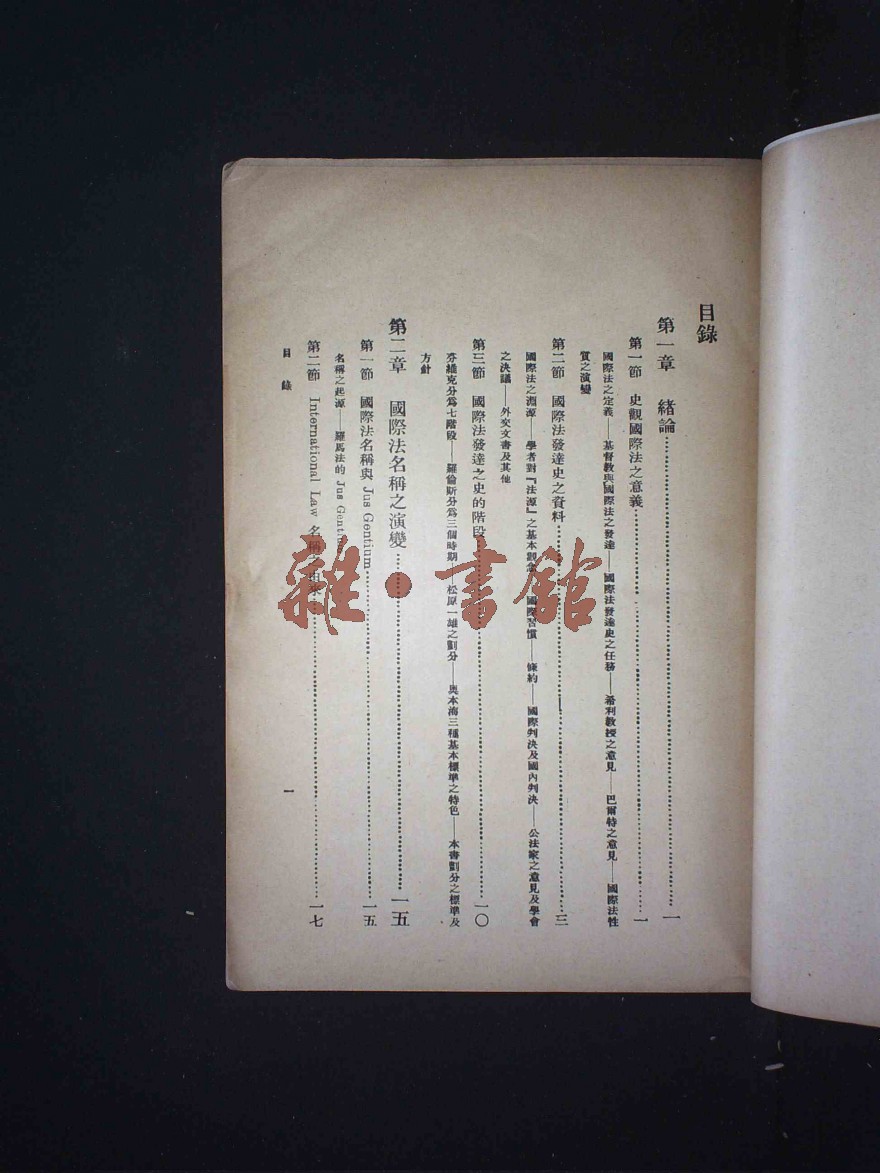 目錄
第一章 緒論 一
第一節 史觀國際法之意義 一
國際法之定義——基督教與國際法之發達——國際法發達史之任務——希利教授之意見——巴爾特之意見——國際法性
質之演變
第二節 國際法發達史之資料 三
國際法之淵源——學者對『法源』之基本觀念——國際習慣——條約——國際判決及國內判決——公法家之意見及學會
之決議——外交文書及其他
第三節 國際法發達之史的階段 一〇
芬維克分爲七階段——羅倫斯分爲三個時期——松原一雄之劃分——奧本海三種基本標準之特色——本書劃分之標準及
方針
第二章 國際法名稱之演變 一五
第一節 國際法名稱與 Jus Gentium 一五
名稱之起源——羅馬法的 Jus Gentium
第二節 International Law 名稱之由來 一七
目錄
一
雜·書館